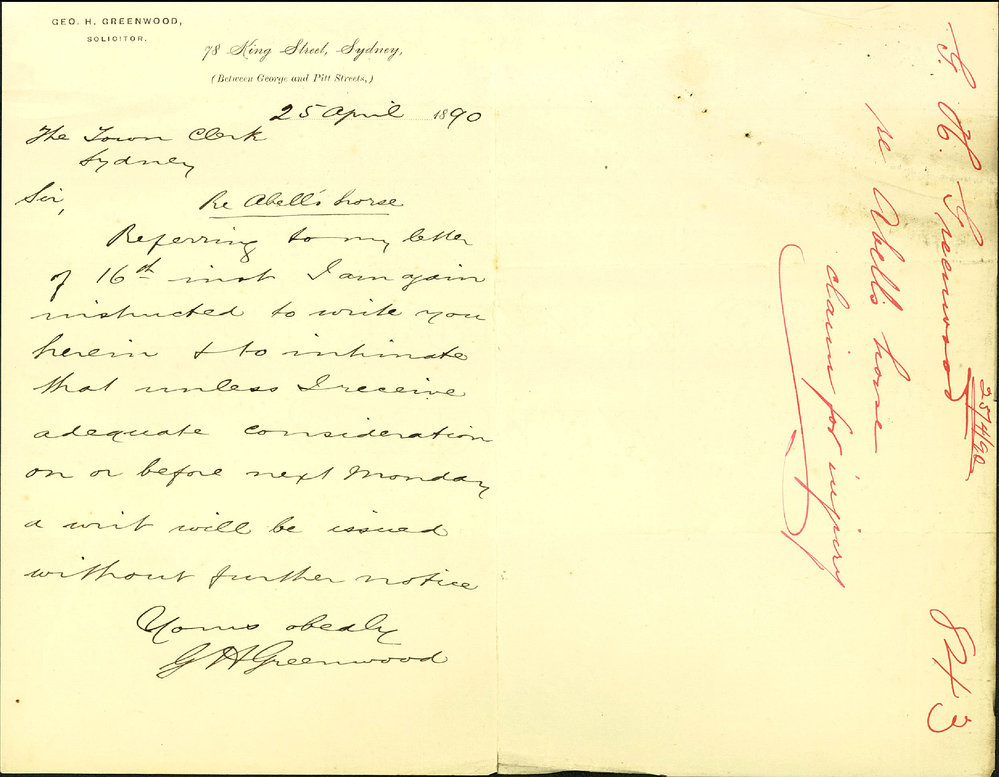 GEO. H. GREENWOOD,
SOLICITOR.
78 King Street, Sydney,
(Between George and Pitt Streets,)
25 April 1890
The Town Clerk
Sydney
Sir,
Re Abell's horse
Referring to my letter
of 16th inst I am again
instructed to write you
herein & to intimate
that unless I receive
adequate consideration
on or before next Monday
a writ will be issued
without further notice
Yours obedly
G H Greenwood
G. H. Greenwood
25/4/90
re Abells horse
claim for injury
843